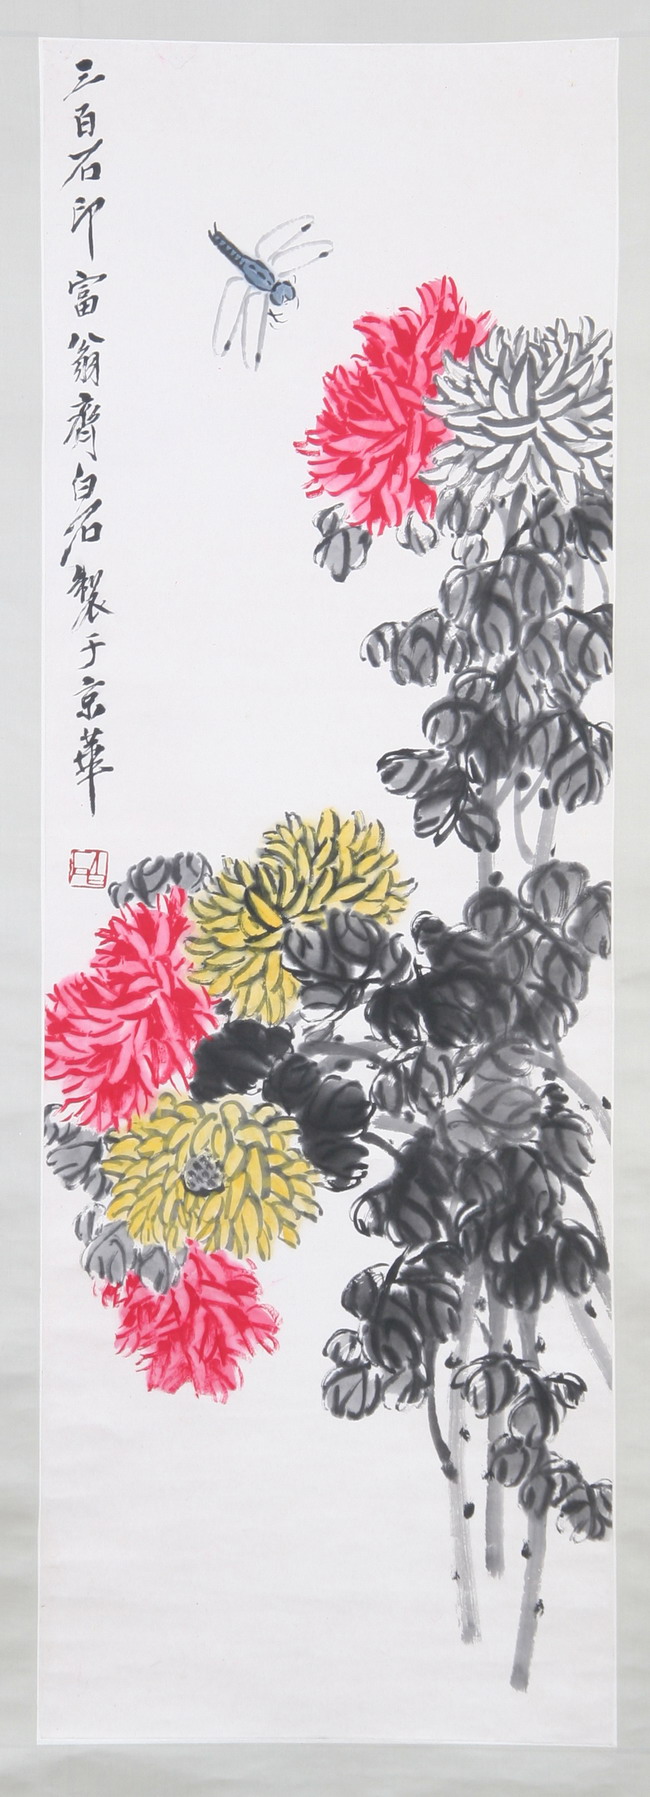 三百石印富翁齊白石製于京華